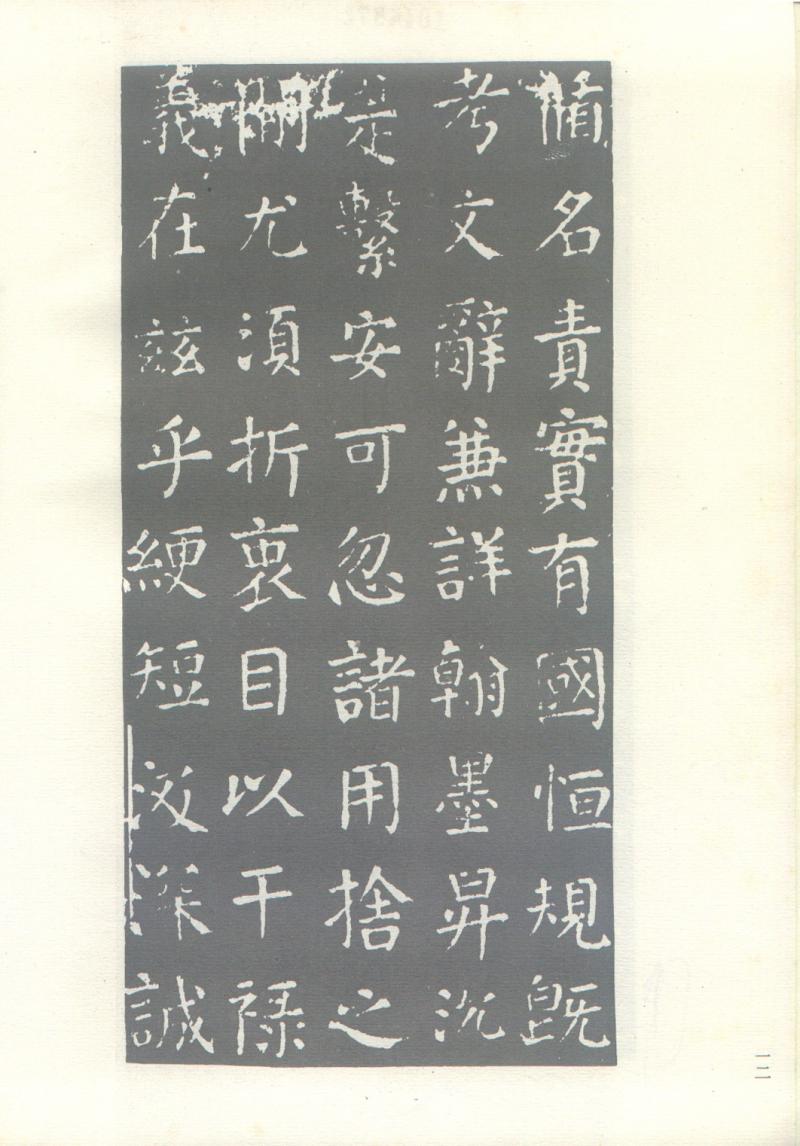 循名責實有國恒規既
考文辭兼詳翰墨昇沉
是繫安可忽諸用捨之
間尤須折衷目以干祿
義在茲乎綆短汲深誠
一二